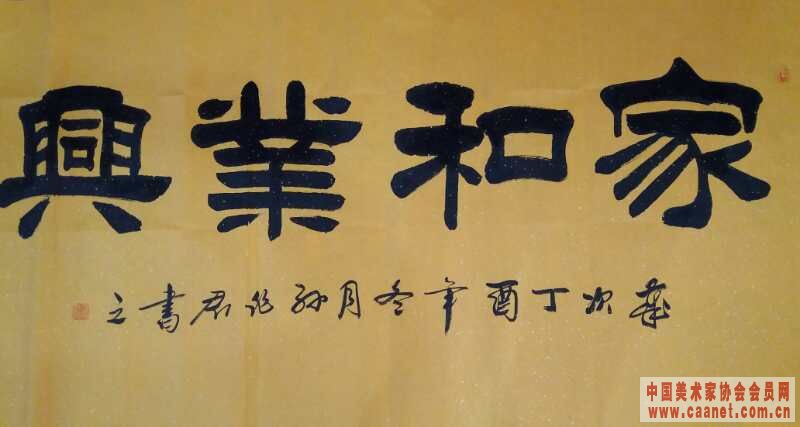 家和業興
歲次丁酉年冬月孙君書之
中国美术家协会会员网
www.caanet.com.cn